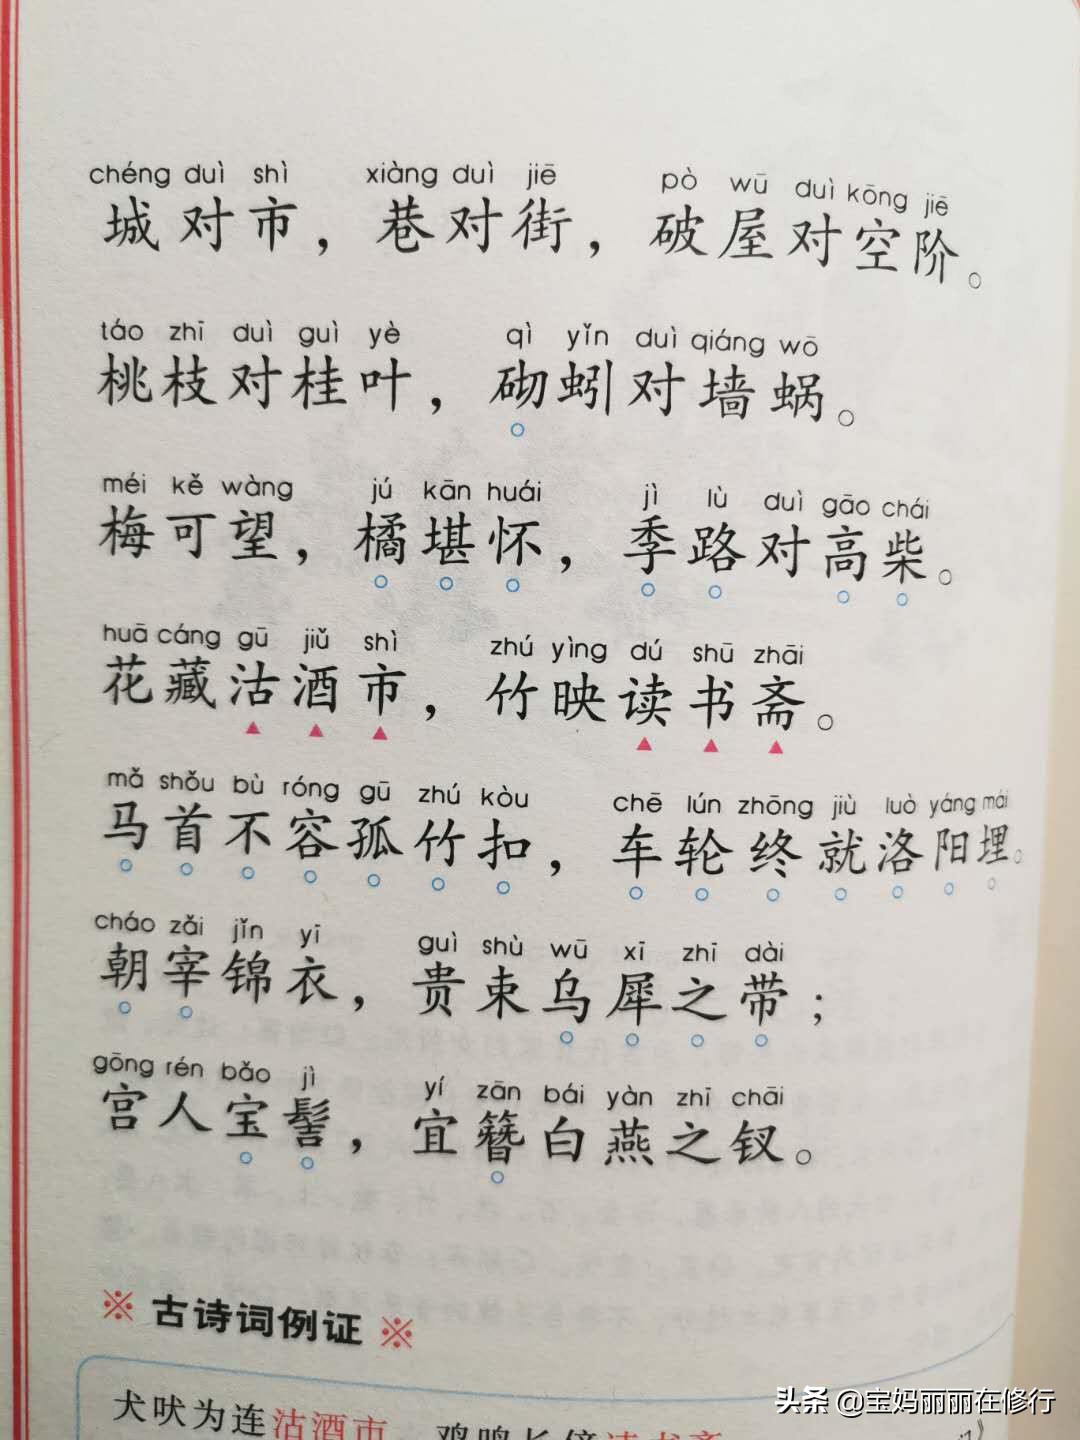 chéng duì shì xiàng duì jiē pò wū duì kōng jiē
城对市，巷对街，破屋对空阶。
táo zhī duì guì yè qì yǐn duì qiáng wō
桃枝对桂叶，砌蚓对墙蜗。
méi kě wàng jú kān huái jì lù duì gāo chái
梅可望，橘堪怀，季路对高柴。
huā cáng gū jiǔ shì zhú yìng dú shū zhāi
花藏沽酒市，竹映读书斋。
mǎ shǒu bù róng gū zhú kòu chē lún zhōng jiù luò yáng mái
马首不容孤竹扣，车轮终就洛阳埋。
cháo zǎi jǐn yī guì shù wū xī zhī dài
朝宰锦衣，贵束乌犀之带；
gōng rén bǎo jì yí zān bái yàn zhī chāi
宫人宝髻，宜簪白燕之钗。
※ 古诗词例证 ※
犬吠为连沽酒市 鸡鸣长傍读书斋
头条 @宝妈丽丽在修行